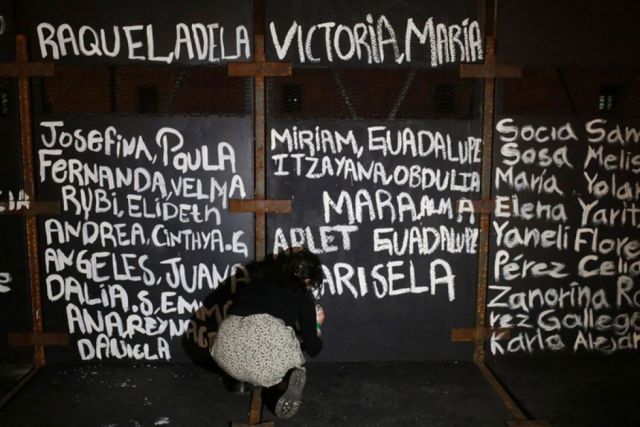 RAQUEL,ADELA
VICTORIA,MARÍA
Josefina, Paula
FERNANDA,VELMA
RUBI, ELIZBETH
ANDREA,CINTHYA.G
ANGELES, JUANA
DALÍA.S,EMMA
ANA,REYNA
DANIELA
MIRIAM, GUADALUPE
ITZAYANA,OBDULIA
MARA,ALMA
ARLET GUADALUPE
ARISELA
Socia San
Sosa Melis
María Yola
Elena Yarit
Yaneli Flore
Pérez Celia
Zanorina Ro
rez Gallego
Karla Alejan